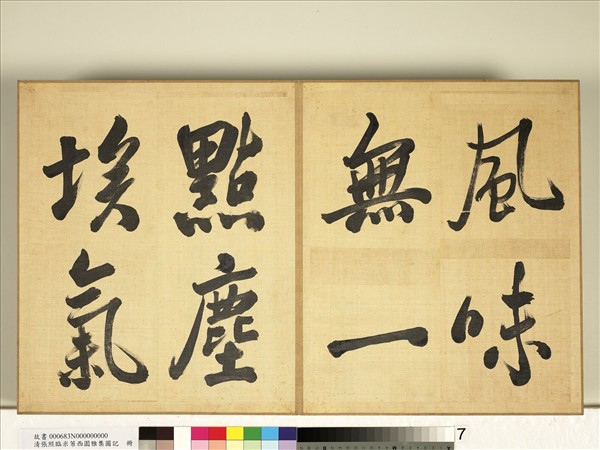 風味
無一
點塵
埃氣
故書 000683N000000000
清張照臨米芾西園雅集圖記 冊
7